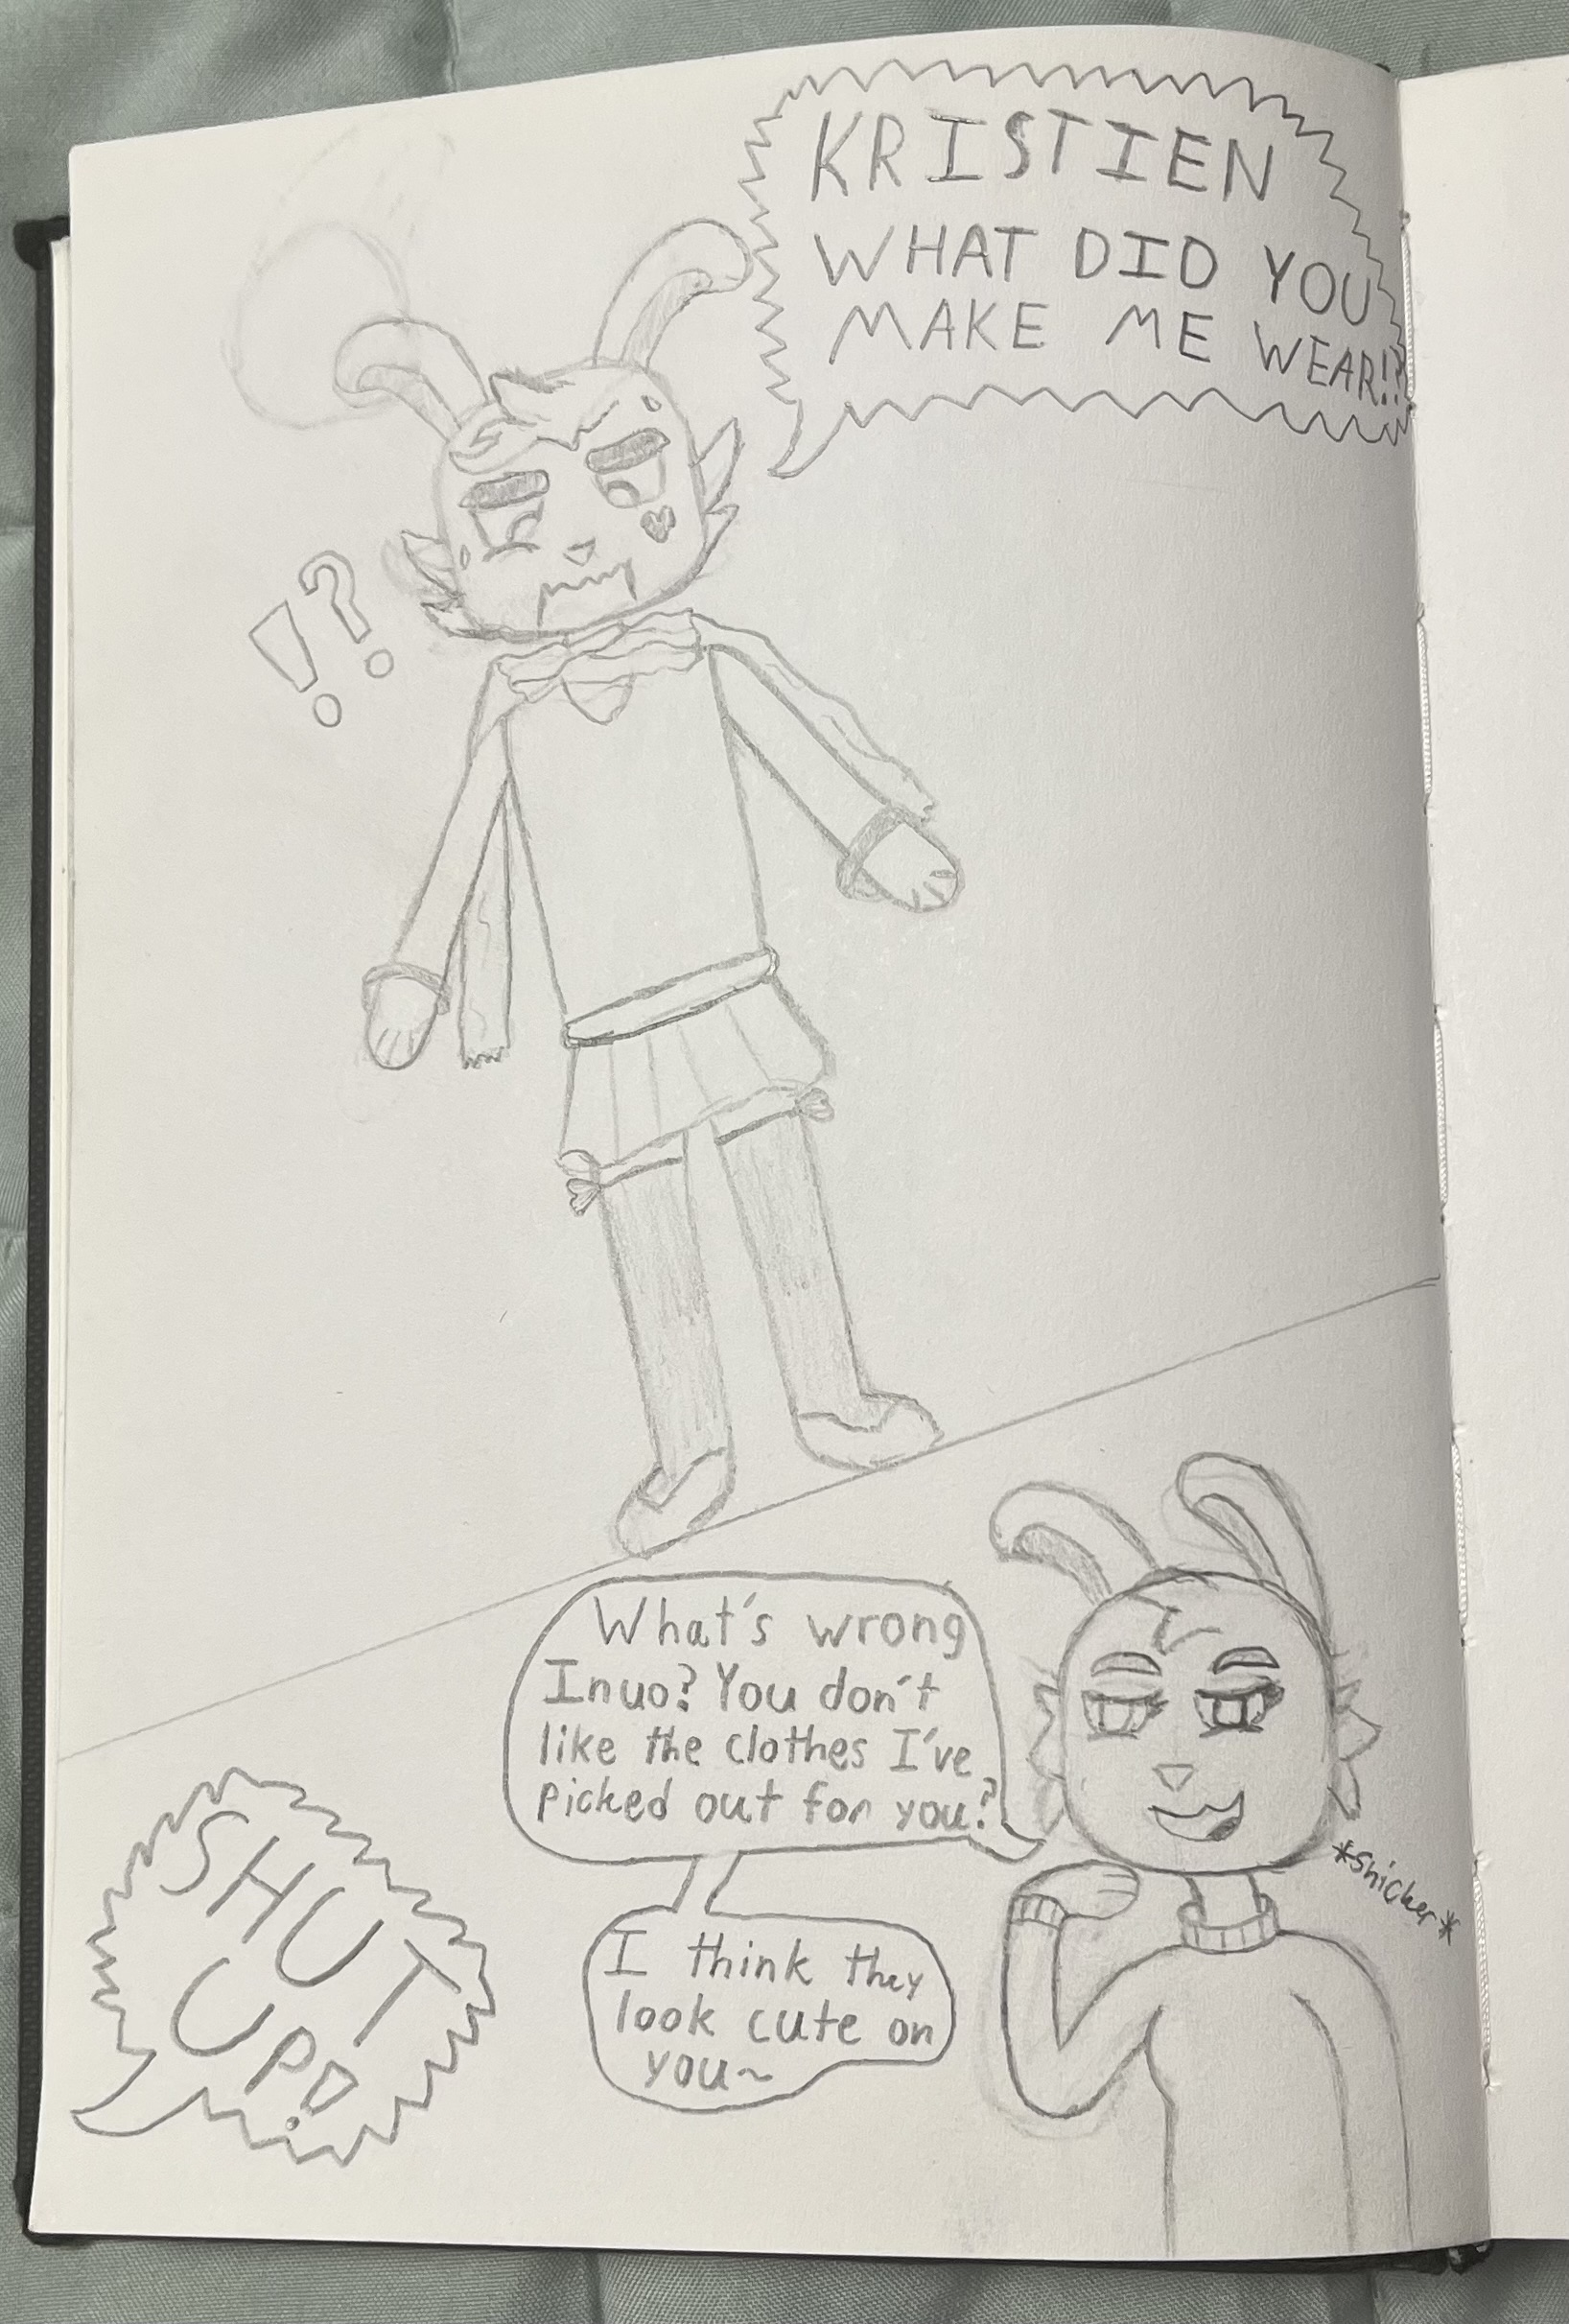 KRISTIEN
WHAT DID YOU
MAKE ME WEAR!?
!?
What's wrong
Inuo? You don't
like the clothes I've
picked out for you?
*snicker*
I think they
look cute on
you~
SHUT
UP!